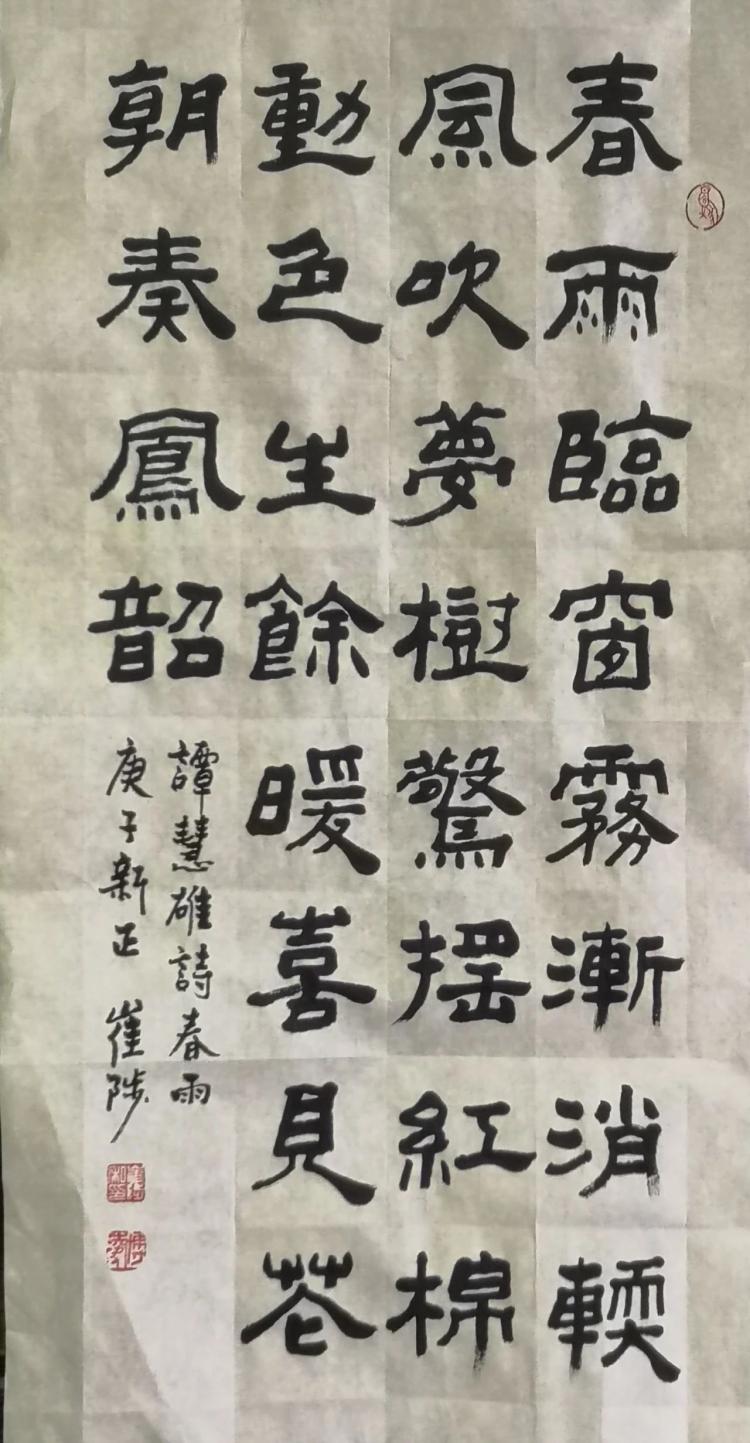 春雨臨窗霧漸消輭
風吹夢樹驚摇紅棉
動色生餘暖喜見花
朝奏鳳韶
譚慧雄詩春雨
庚子新正 崔陟